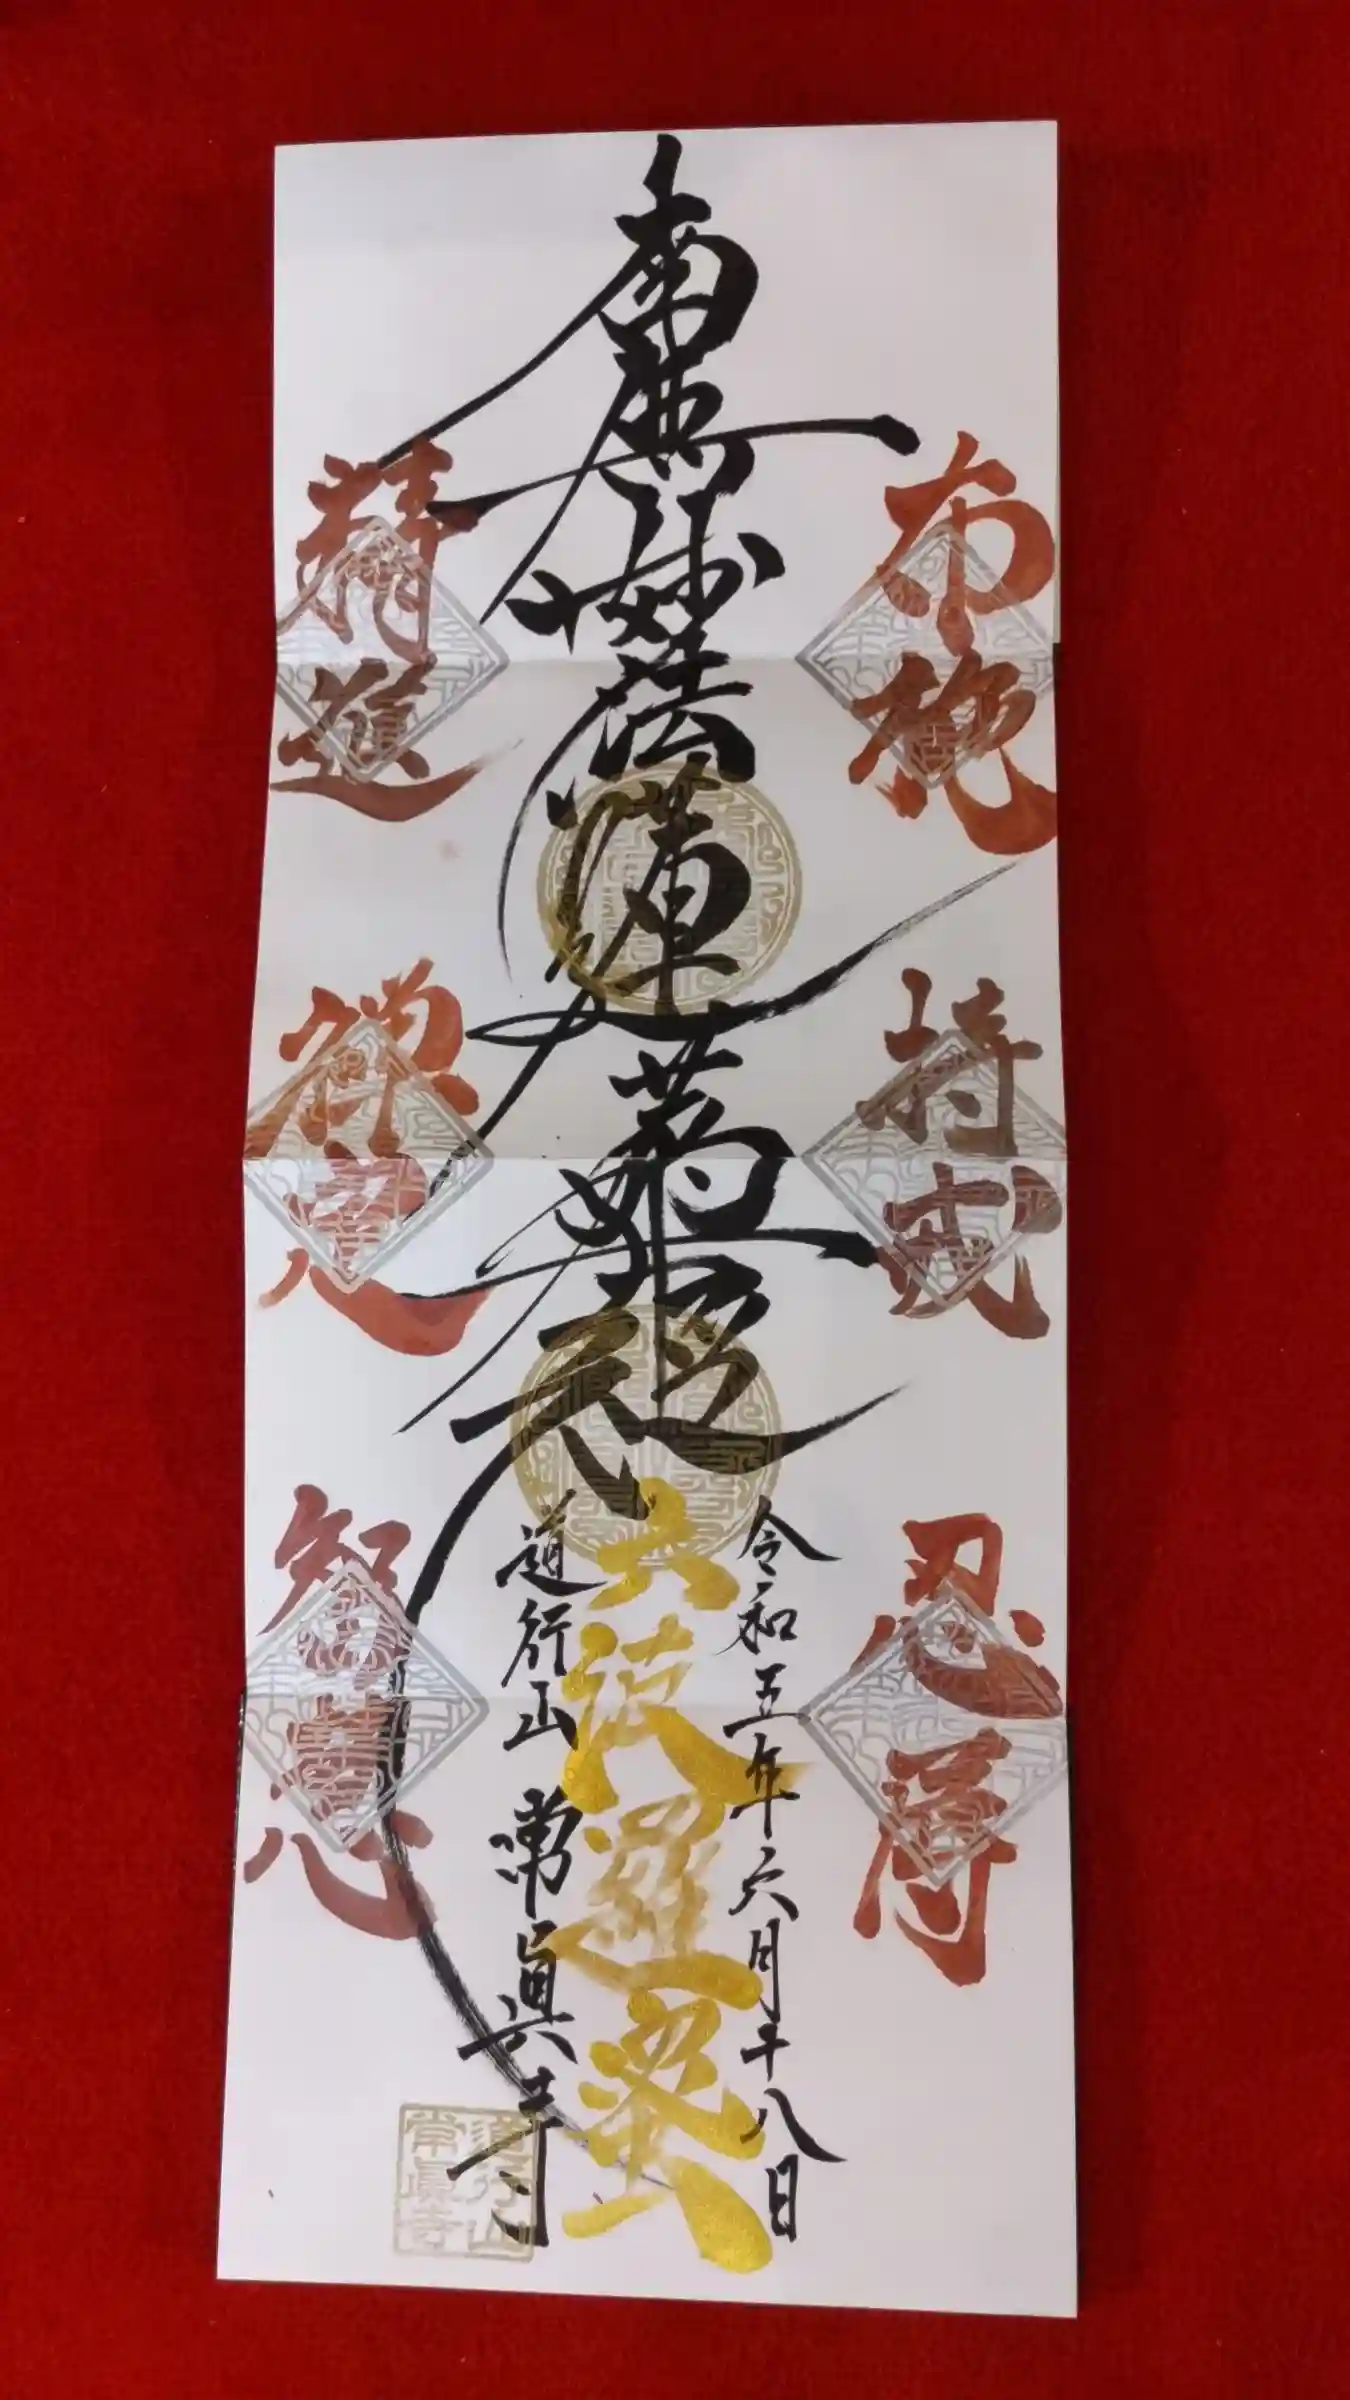 南無妙法蓮華経
布施
持戒
忍辱
精進
禅定
智慧
六波羅蜜
令和五年六月十八日
道行山 常眞寺
道行山
常眞寺